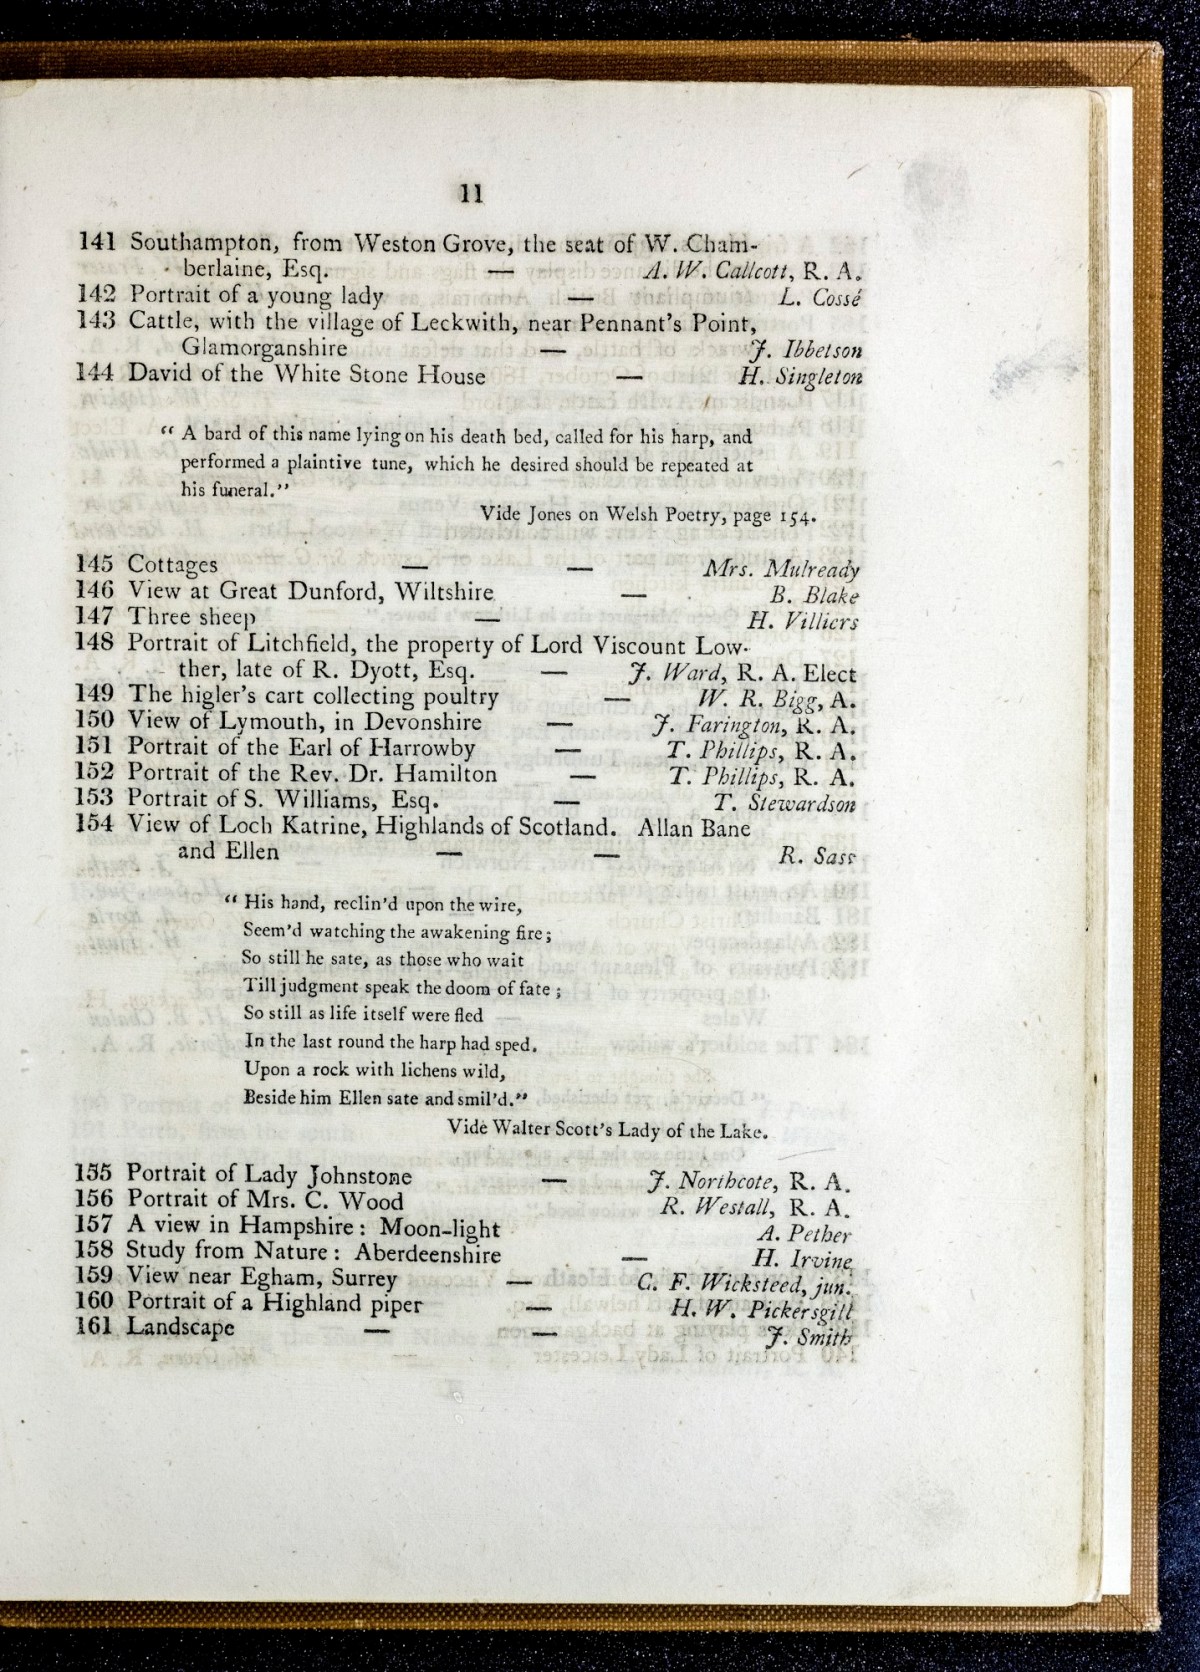 11
141 Southampton, from Weston Grove, the seat of W. Cham-
berlaine, Esq. — A. W. Callcott, R. A.
142 Portrait of a young lady — L. Cossé
143 Cattle, with the village of Leckwith, near Pennant's Point,
Glamorganshire — J. Ibbetson
144 David of the White Stone House — H. Singleton
“ A bard of this name lying on his death bed, called for his harp, and
performed a plaintive tune, which he desired should be repeated at
his funeral.”
Vide Jones on Welsh Poetry, page 154.
145 Cottages — — Mrs. Mulready
146 View at Great Dunford, Wiltshire — B. Blake
147 Three sheep — H. Villiers
148 Portrait of Litchfield, the property of Lord Viscount Low-
ther, late of R. Dyott, Esq. — J. Ward, R. A. Elect
149 The higler's cart collecting poultry — W. R. Bigg, A.
150 View of Lymouth, in Devonshire — J. Farington, R. A.
151 Portrait of the Earl of Harrowby — T. Phillips, R. A.
152 Portrait of the Rev. Dr. Hamilton — T. Phillips, R. A.
153 Portrait of S. Williams, Esq. — T. Stewardson
154 View of Loch Katrine, Highlands of Scotland. Allan Bane
and Ellen — — R. Sass
“ His hand, reclin'd upon the wire,
Seem'd watching the awakening fire;
So still he sate, as those who wait
Till judgment speak the doom of fate;
So still as life itself were fled
In the last round the harp had sped.
Upon a rock with lichens wild,
Beside him Ellen sate and smil'd.”
Vide Walter Scott's Lady of the Lake.
155 Portrait of Lady Johnstone — J. Northcote, R. A.
156 Portrait of Mrs. C. Wood R. Westall, R. A.
157 A view in Hampshire: Moon-light A. Pether
158 Study from Nature: Aberdeenshire — H. Irvine
159 View near Egham, Surrey — C. F. Wicksteed, jun.
160 Portrait of a Highland piper — H. W. Pickersgill
161 Landscape — — J. Smith